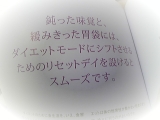 鈍った味覚と、
緩みきった胃袋には、
ダイエットモードにシフトさせる
ためのリセットデイを設けると
スムーズです。